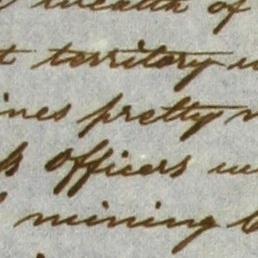 wealth of
territory
ines pretty
officers
mining